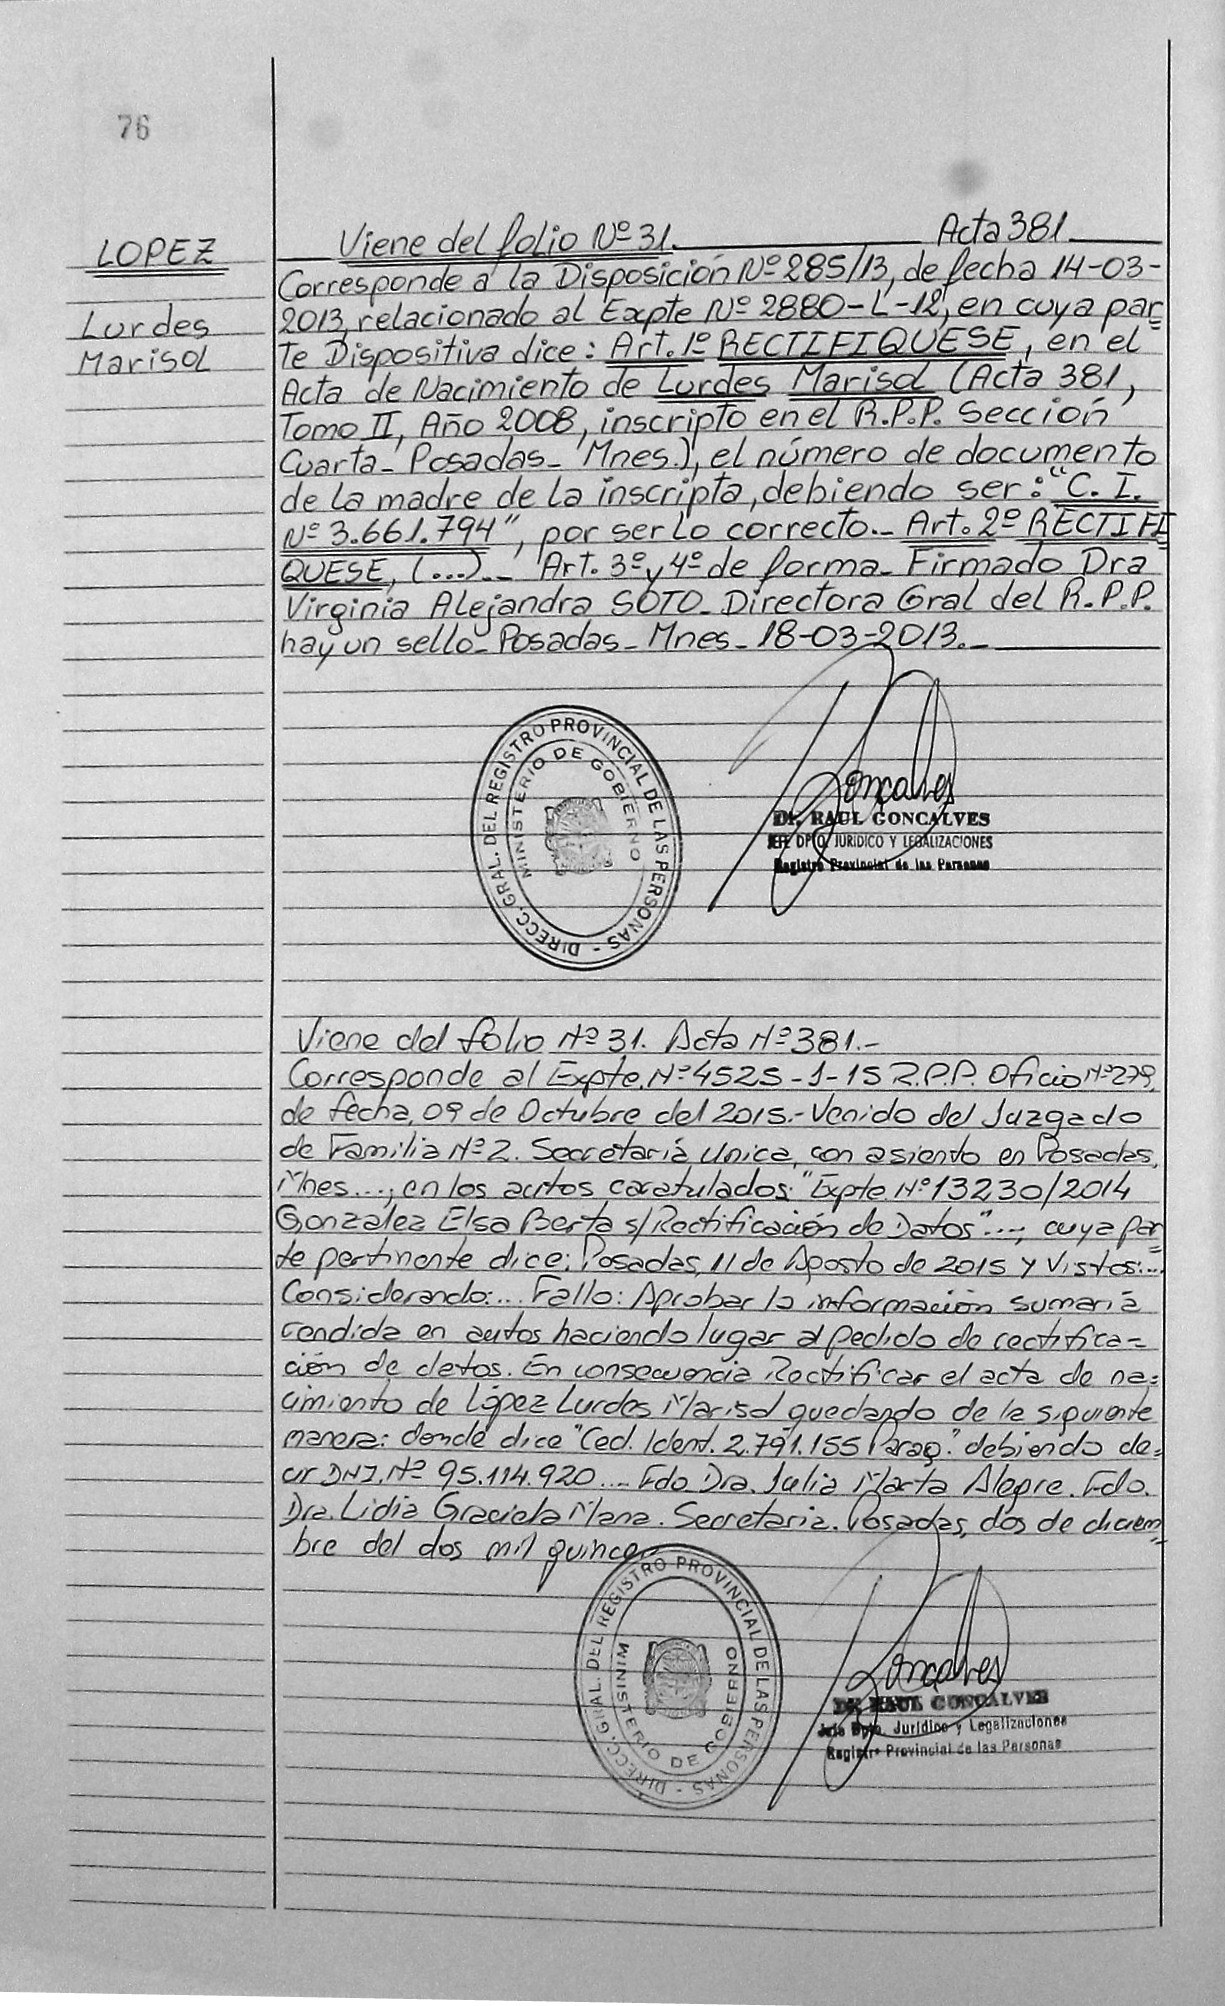 76
LOPEZ
Lurdes
Marisol
Viene del folio Nº 31. Acta 381
Corresponde a la Disposición Nº 285/13, de fecha 14-03-
2013, relacionado al Expte Nº 2880-L-12, en cuya par=
te Dispositiva dice: Art. 1º RECTIFIQUESE, en el
Acta de Nacimiento de Lurdes Marisol (Acta 381,
Tomo II, Año 2008, inscripto en el R.P.P. Sección
Cuarta- Posadas- Mnes.), el número de documento
de la madre de la inscripta, debiendo ser: "C. I.
Nº 3.661.794", por ser lo correcto.- Art. 2º RECTIFI=
QUESE, (...).- Art. 3º y 4º de forma- Firmado Dra
Virginia Alejandra SOTO- Directora Gral del R.P.P.
hay un sello- Posadas- Mnes- 18-03-2013.-
DIRECC. GRAL. DEL REGISTRO PROVINCIAL DE LAS PERSONAS -
MINISTERIO DE GOBIERNO
Goncalves
Dr. RAUL GONCALVES
JEFE DPTO. JURIDICO Y LEGALIZACIONES
Registro Provincial de las Personas
Viene del folio Nº 31. Acta Nº 381.-
Corresponde al Expte. Nº 4525-1-15 R.P.P. Oficio Nº 279,
de fecha, 09 de Octubre del 2015.- Venido del Juzgado
de Familia Nº 2. Secretaría Unica, con asiento en Posadas,
Mnes...., en los autos caratulados: "Expte. Nº 13230/2014
Gonzalez Elsa Berta s/Rectificación de Datos"..., cuya par=
te pertinente dice: Posadas, 11 de Agosto de 2015 y Vistos:...
Considerando:... Fallo: Aprobar la información sumaria
rendida en autos haciendo lugar al pedido de rectifica=
ción de datos. En consecuencia Rectificar el acta de na=
cimiento de López Lurdes Marisol quedando de la siguiente
manera: donde dice "Ced. Ident. 2.791.155 Parag." debiendo de=
cir D.N.I. Nº 95.114.920.... Fdo. Dra. Julia Marta Alegre. Fdo.
Dra. Lidia Graciela Mana. Secretaria. Posadas, dos de diciem=
bre del dos mil quince
DIRECC. GRAL. DEL REGISTRO PROVINCIAL DE LAS PERSONAS -
MINISTERIO DE GOBIERNO
Goncalves
Dr. RAUL GONCALVES
Jefe Dpto. Jurídico y Legalizaciones
Registro Provincial de las Personas